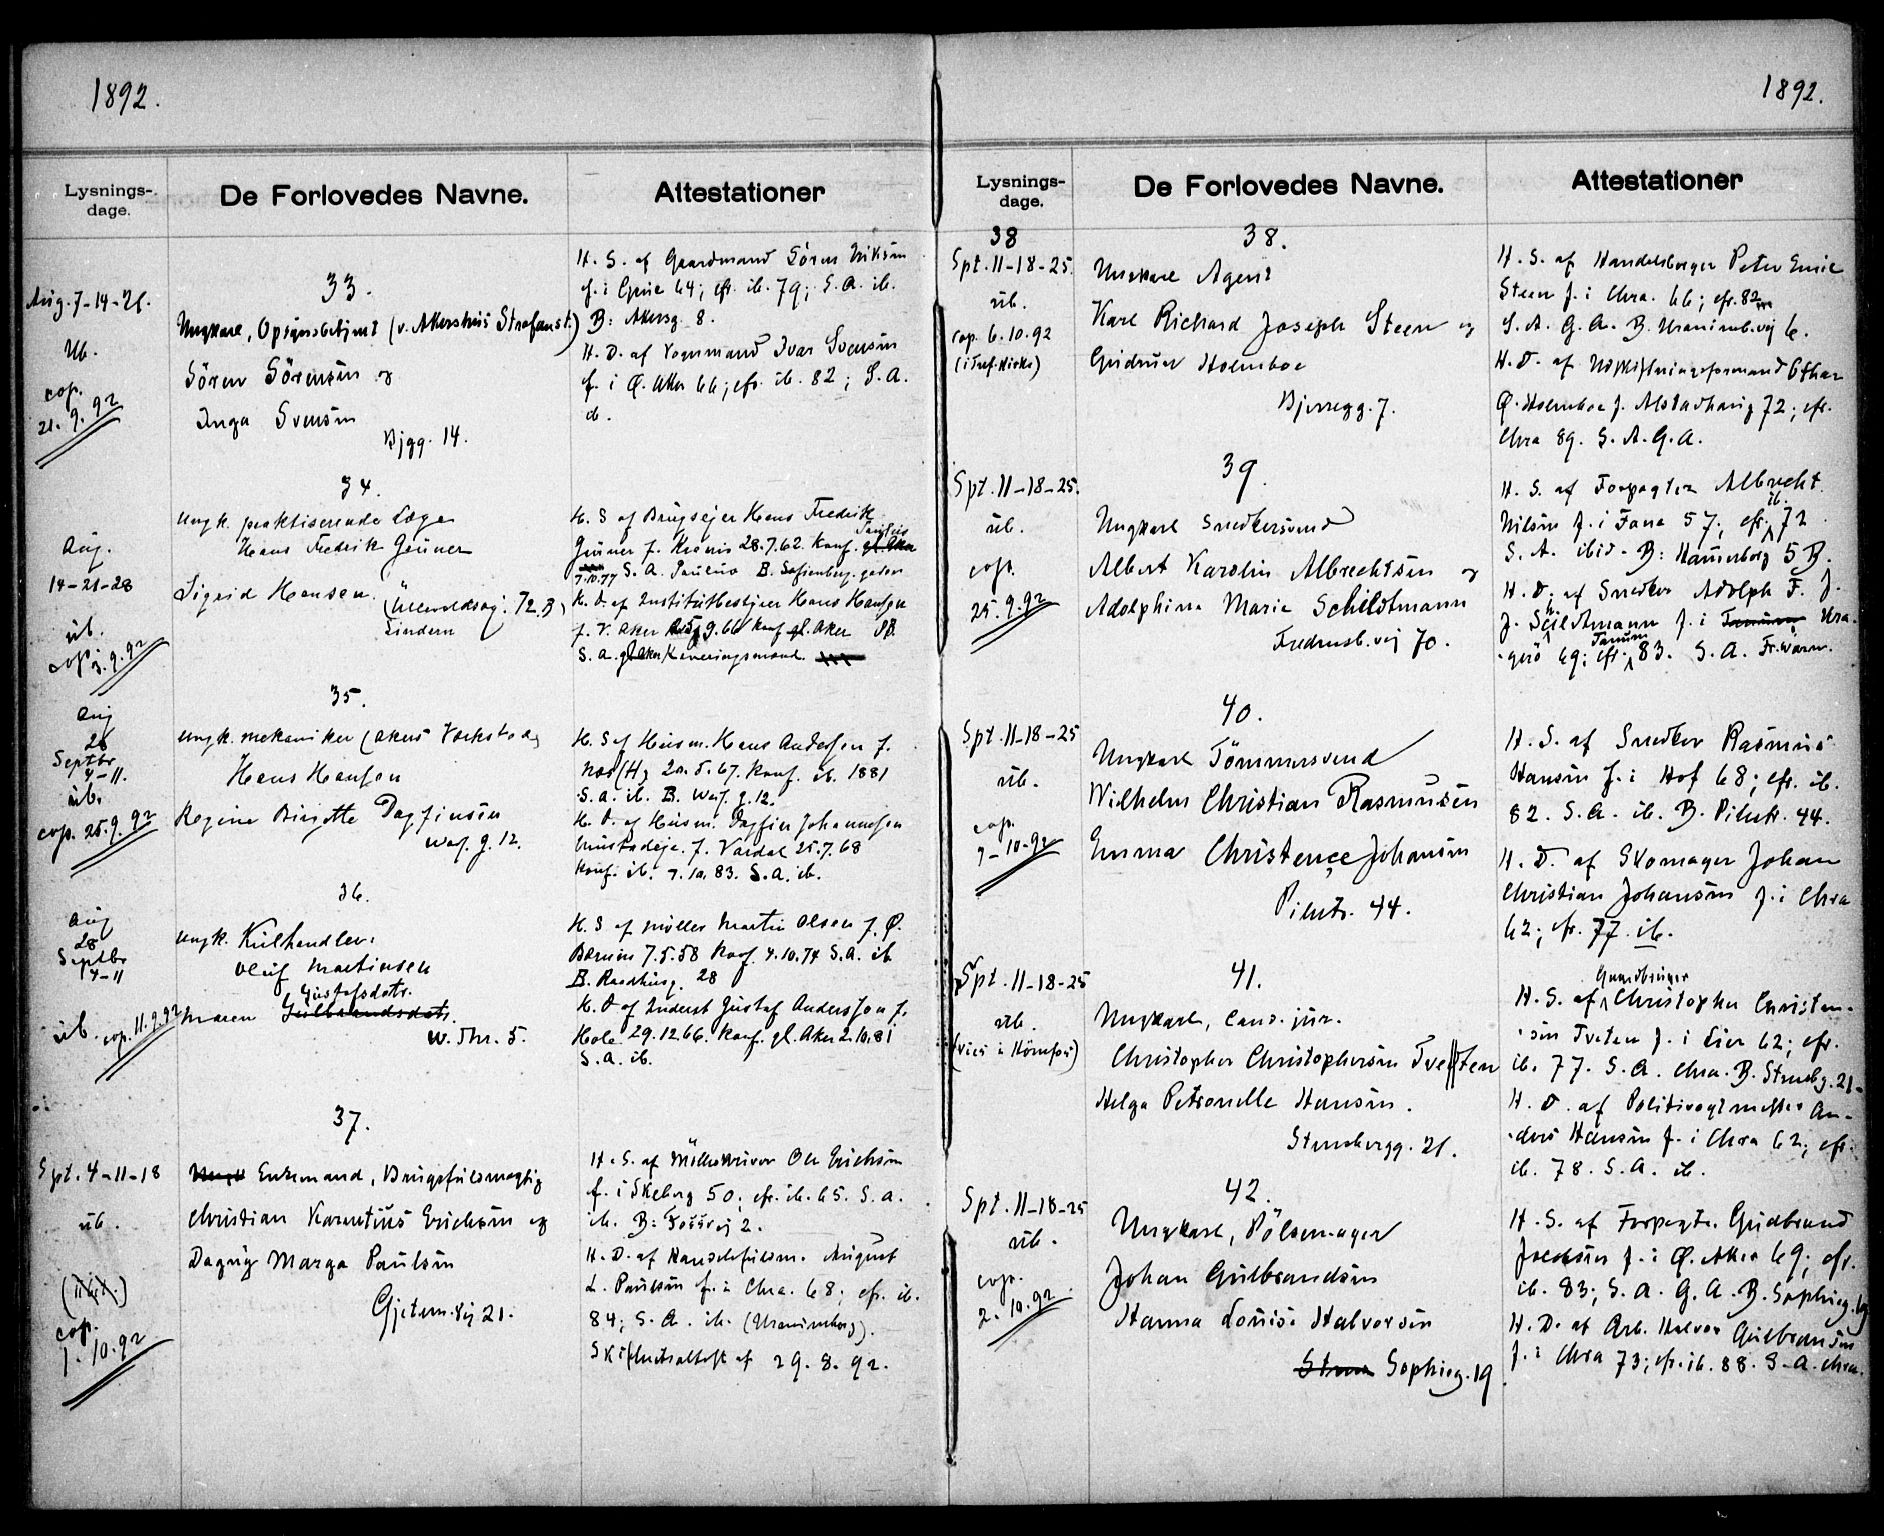 1892.
Lysnings-
dage.
De Forlovedes Navne.
Attestationer
33.
Aug. 7-14-21.
üb.
cop.
21. 9. 92
Ungkarl, Opsynsbetjent (v. Akershus Strafanst.)
Sören Sörensen og
Inga Svensen
Bjgg. 14.
H. S. af Gaardmand Sören
f. i Grue 64; cfr. ib. 79; S. A. ib.
B: Akersg. 8.
H. D. af Vognmand Ivar Svensen
f. i Ø. Aker 66; cfr. ib. 82; S. A.
ib.
34.
Aug.
14-21-28
üb.
cop. 3. 9. 92
ungk. praktiserende Læge
Hans Fredrik Grüner
Sigrid Hansen. (Ullevoldsvej. 72.B)
Lindern
H. S af Brugsejer Hans Fredrik
Grüner f. 28.7.62. konf. Paulus
7.10.77 S. A. Paulus B. Sofienberg. gaden
H. D. af Institutbestyrer Hans Hansen
f. V. Aker 9. 66 konf gl. Aker
S. A. gl. Aker
35.
Aug
28
Septbr
4-11.
üb.
cop. 25. 9. 92
ungk. mekaniker (akers Værksted)
Hans Hansen
Regine Birgitte Dagfinsen
Waj. g. 12.
H. S af Husm. Hans Andersen f.
Næs (H) 20. 5. 67. Konf. ib. 1881
S. A. ib. B. Waj. g. 12.
H. D. af Husm. Dagfin Johannesen
f. Vardal 25. 7. 68
Konf. ib. 7. 10. 83. S. A. ib.
36.
Aug
28
Septbr
4-11
üb. cop. 11. 9. 92
ungk. Kulhandler.
Oluf Martinsen
Gustafsdatr.
Maren Gulbrandsdatr.
W. Thr. 5.
H. S af Møller Martin Olsen f. Ø.
Bærum 7. 5. 58 Konf. 4. 10. 74 S. A. ib
B. Raadhusg. 28
H. D af Inderst Gustaf Anderson f.
Hole 29. 12 66. Konf. gl. Aker 2. 10. 81
S. A. ib.
37.
Spt. 4-11-18
üb.
cop.
1. 10. 92
Ungk Enkemand, Brugsfuldmægtig
Christian Karentius Erichsen og
Dagny Marga Paulsen
Gjetem. vej 21.
H. S. af Ole Erichsen
f. i Skeberg 50; cfr. ib. 65. S. A.
ib. B: Fossvej 2.
H. D. af Handelsfuldm. August
L. Paulsen f. i Chra. 68; cfr. ib.
84; S. A. ib. (Uranienborg).
Skifteattest af 29. 8. 92.
1892.
Lysnings-
dage.
De Forlovedes Navne.
Attestationer
38
38.
Spt. 11-18-25.
üb.
cop. 6. 10. 92
Ungkarl Agent
Karl Richard Joseph Steen og
Gudrun Holmboe
Bjerregg. 7.
H. S. af Handelsborger Peter Emil
Steen f. i Chra. 66; cfr. 82
S. A. G. A. B. Uranienb. vej 6.
H. D. af Udskiftningsformand Othar
Ø. Holmboe f. Alstadhaug 72; cfr.
Chra 89. S. A. G. A.
39.
Spt. 11-18-25.
üb.
cop.
25. 9. 92
Ungkarl Snedkersvend
Albert Karolin Albrechtsen og
Adolphine Marie Schildtmann
Fredensb. vej 70.
H. S. af Forpagter Albrecht
Nilsen f. i Fane 57; cfr. ib. 72
S. A. ibid. B: Hammerborg 5 B.
H. D. af Snedker Adolph F. J.
J. Schildtmann f. i Tanum Kra-
gerö 69; cfr. Tanum 83. S. A.
40.
Spt. 11-18-25
üb.
cop.
9-10-92
Ungkarl Tömmersvend
Wilhelm Christian Rasmusen
Emma Christence Johansen
Pilestr. 44.
H. S. af Snedker Rasmus
Hansen f. i Hof 68; cfr. ib.
82. S. A. ib. B. Pilestr. 44.
H. D. af Skomager Johan
Christian Johansen f. i Chra
62; cfr. 77 ib.
41.
Spt. 11-18-25
üb.
(viet i Hönefos)
Ungkarl, Cand. jur.
Christopher Christophersen Tveten
Helga Petronelle Hansen.
Stensbergg. 21.
Gaardbruger
H. S. af Christopher Christen-
sen Tveten f. i Lier 62; cfr.
ib. 77. S. A. Chra. B. Stensbg. 21-
H. D. af Politivagtmester An-
ders Hansen f. i Chra 62; cfr.
ib. 78. S. A. ib.
42.
Spt. 11-18-25
üb.
cop.
2. 10. 92.
Ungkarl, Pölsemager
Johan Gulbrandsen
Hanna Lovise Halvorsen
Sophieg. 19.
H. S. af Forpagter Gudbrand
f. i Ø. Aker 69; cfr.
ib. 83; S. A. G. A. B. Sophieg. 19
H. D. af Arb. Halvor Gulbransen
f. i Chra 73; cfr. ib. 88. S. A. Chra.